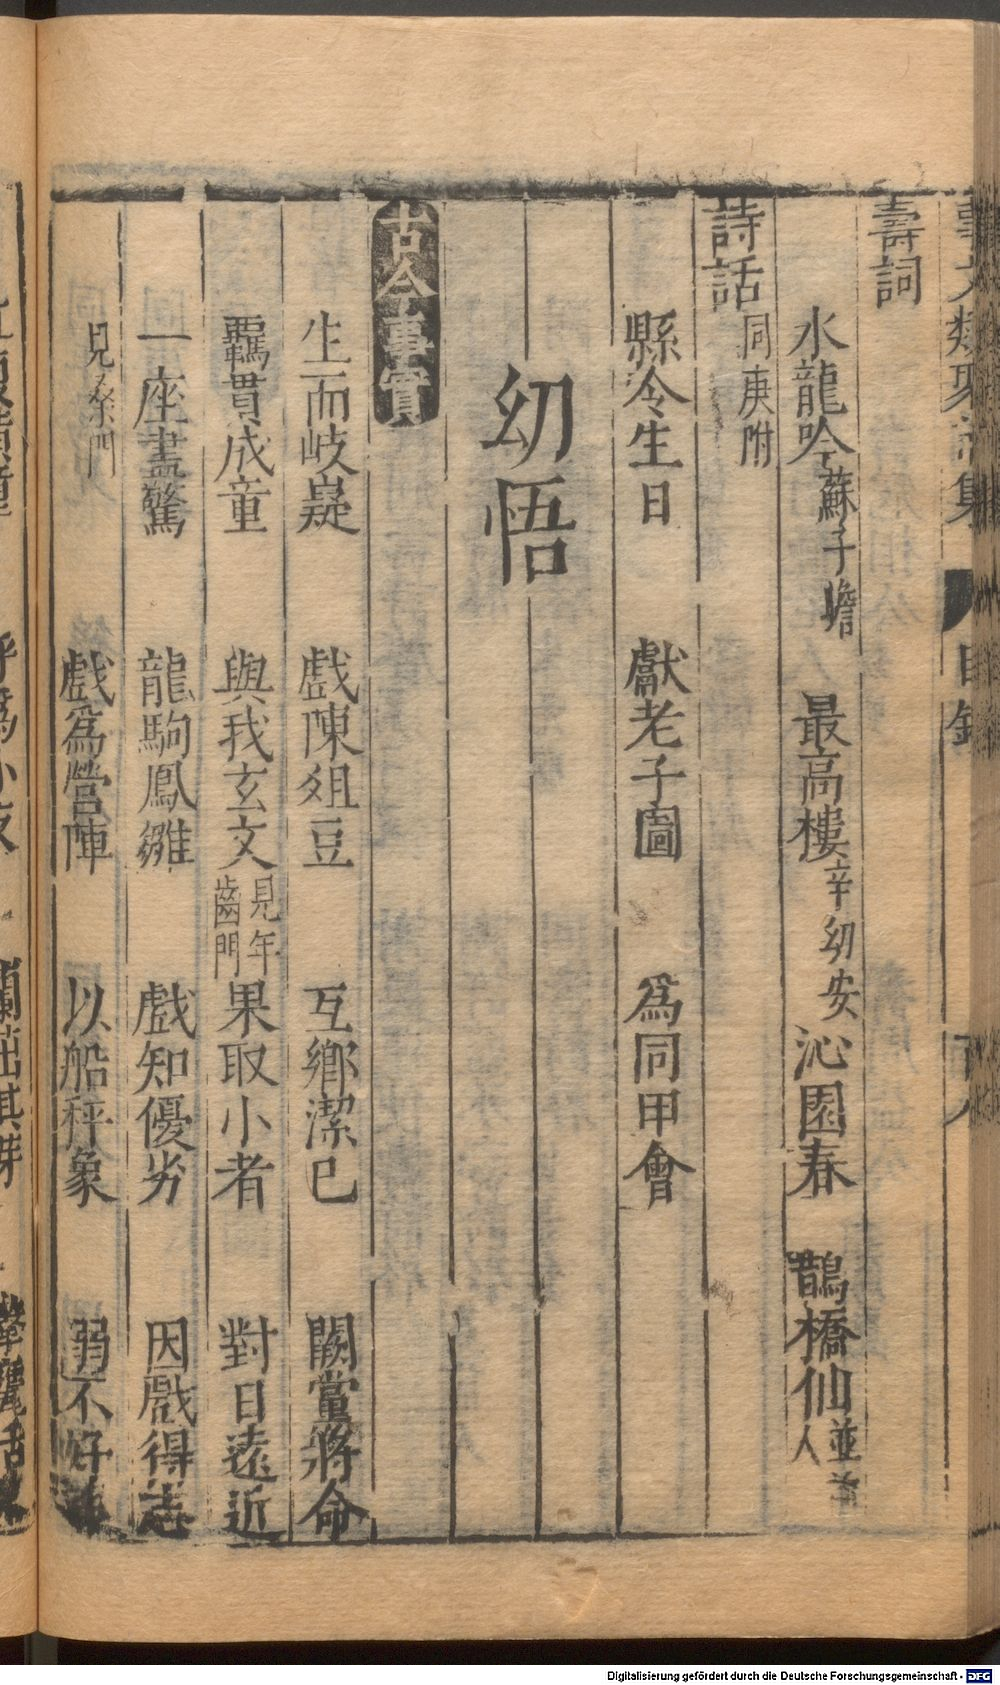 事文類聚前集 目錄
壽詞
水龍吟蘇子瞻 最高樓辛幼安 沁園春 鵲橋仙並前人
詩話同庚附
縣令生日 獻老子圖 爲同甲會
幼悟
古今事實
生而岐嶷 戲陳俎豆 互鄉潔己 闕黨將命
羈貫成童 與我玄文見年齒門 果取小者 對日遠近
一座盡驚 龍駒鳳雛 戲知優劣 因戲得志
見桑門 戲爲營陣 以船秤象 弱不好弄
Digitalisierung gefördert durch die Deutsche Forschungsgemeinschaft - DFG